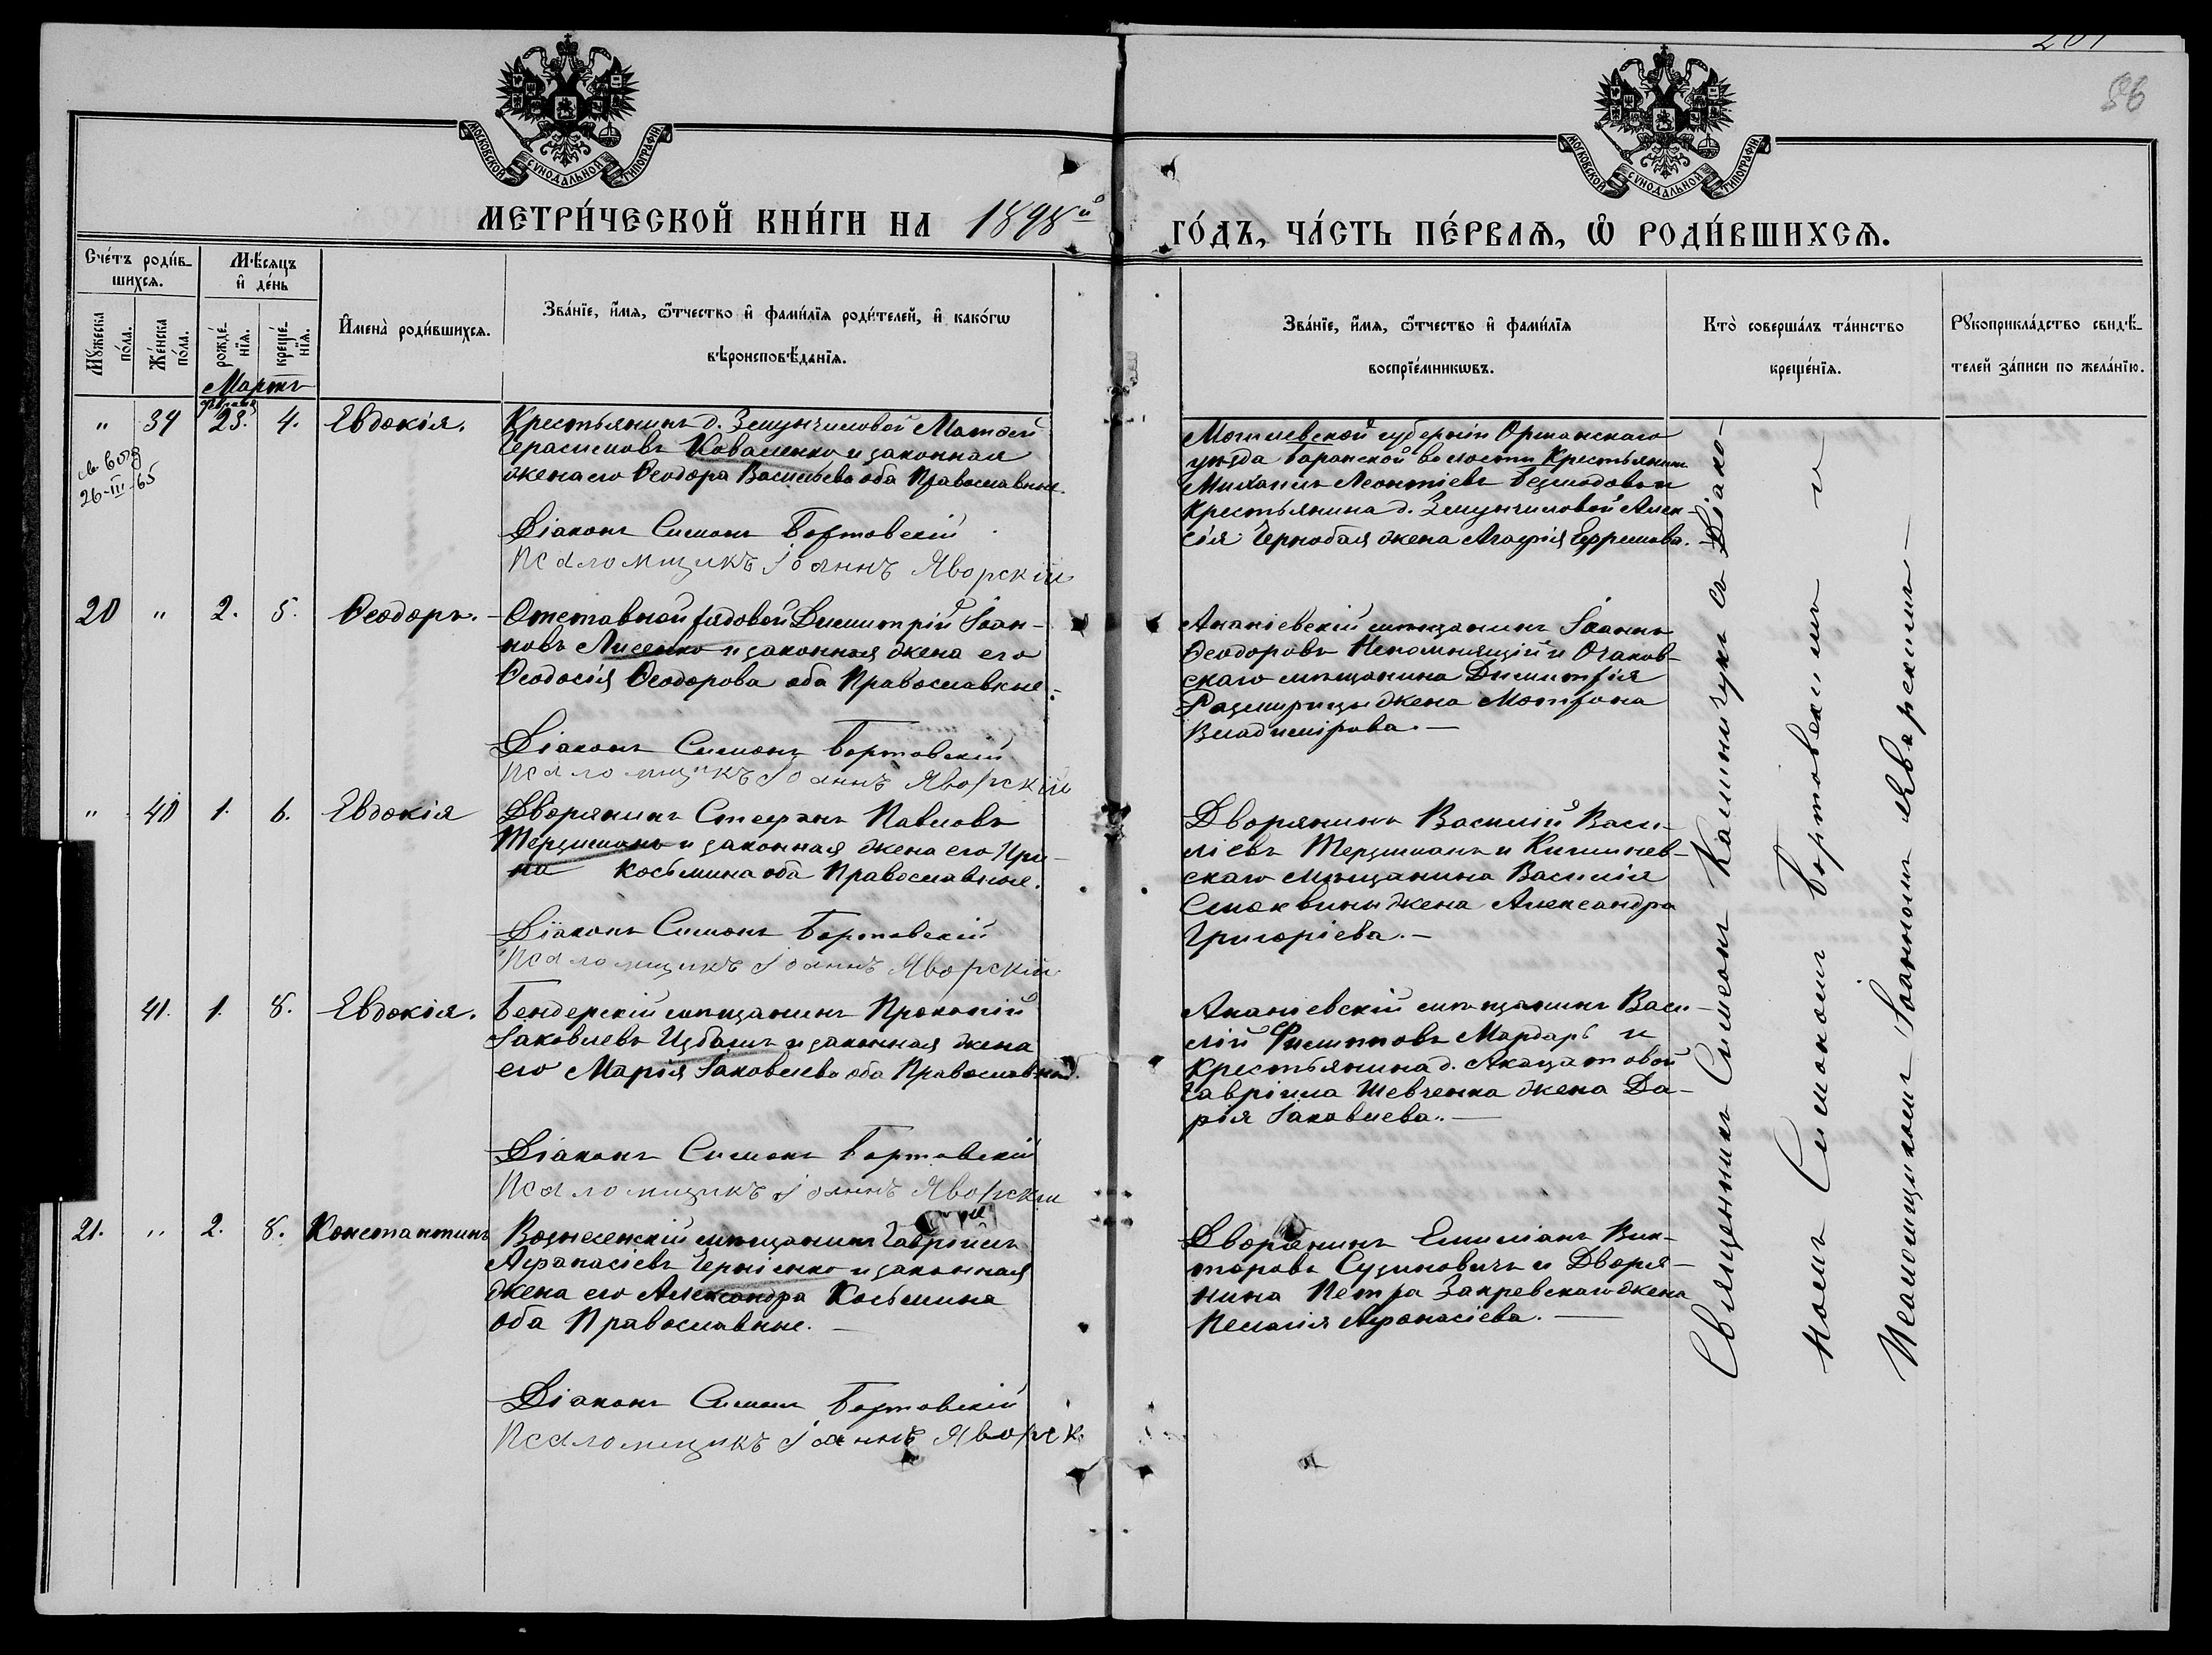 201
56
МОСКОВСКОЙ СѴНОДАЛЬНОЙ ТИПОГРАФІИ.
МОСКОВСКОЙ СѴНОДАЛЬНОЙ ТИПОГРАФІИ.
МЕТРИ́ЧЕСКОЙ КНИ́ГИ НА 1898й ГО́ДЪ, ЧА́СТЬ ПЕ́РВАѦ, Ѡ҆ РОДИ́ВШИХСѦ.
Сче́тъ роди́в-
шихсѧ.
Мѣ́сяцъ
и҆ де́нь
Мꙋ́жеска
по́ла.
Же́нска
по́ла.
рожде́-
нїѧ.
креще́-
нїѧ.
И҆мена̀ роди́вшихсѧ.
Зва́нїе, и҆́мѧ, ѻ҆́тчество и҆ фами́лїѧ роди́телей, и҆ како́гѡ
вѣроисповѣ́данїѧ.
Зва́нїе, и҆́мѧ, ѻ҆́тчество и҆ фами́лїѧ
воспрїе́мникѡвъ.
Кто̀ соверша́лъ та́инство
креще́нїѧ.
Рꙋкоприкла́дство свидѣ́-
телей за́писи по жела́нїю.
Мартъ
Февраля
" 39 28. 4. Евдокія.
26-III-65
Крестьянинъ д. Земунчиловой Матѳей
Герасимовъ Коваленко и законная
жена его Ѳеодора Васильева оба Православные.
Діаконъ Симонъ Бортовскій
Псаломщикъ Іоаннъ Яворскій
Могилевской губерніи Оршанскаго
уѣзда Баранской волости Крестьянинъ
Михаилъ Леонтіевъ и
Крестьянина д. Земунчиловой Алек-
сія Чернобая жена Агафія Ефремова.
20 " 2. 5. Ѳеодоръ.
Отставной рядовой Димитрій Іоан-
новъ Лисенко и законная жена его
Ѳеодосія Ѳеодорова оба Православные.
Діаконъ Симонъ Бортовскій
Псаломщикъ Іоаннъ Яворскій
Ананіевскій мѣщанинъ Іоаннъ
Ѳеодоровъ Непомнящій и Очаков-
скаго мѣщанина Димитрія
жена Мотрона
Владимірова.—
" 40 1. 6. Евдокія
Дворянинъ Стефанъ Павловъ
Терцманъ и законная жена его Ири-
на Косьмина оба Православные.
Діаконъ Симонъ Бортовскій
Псаломщикъ Іоаннъ Яворскій
Дворянинъ Василій Васи-
ліевъ Терцманъ и Кишинев-
скаго мѣщанина Василія
Смоквины жена Александра
Григоріева.—
41. 1. 8. Евдокія.
Бендерскій мѣщанинъ Прокопій
Іаковлевъ Цѣбалъ и законная жена
его Марія Іаковлева оба Православные.
Діаконъ Симонъ Бортовскій
Псаломщикъ Іоаннъ Яворскій
Ананіевскій мѣщанинъ Васи-
лій Филипповъ Мардарь и
Крестьянина д. Акацатовой
Гавріила Шевченка жена Да-
рія Іаковлева.—
21. " 2. 8. Константинъ
Вознесенскій мѣщанинъ Гавріилъ
Аѳанасіевъ Черненко и законная
жена его Александра Косьмина
оба Православные.—
Діаконъ Симонъ Бортовскій
Псаломщикъ Іоаннъ Яворск.
Дворянинъ Емиліанъ Вик-
торовъ Сузиновичъ и Дворя-
нина Петра Закревскаго жена
Пелагія Аѳанасіева.—
Священникъ Симеонъ Калинчукъ съ Діако-
номъ Симономъ Бортовскимъ и
Псаломщикомъ Іоанномъ Яворскимъ—